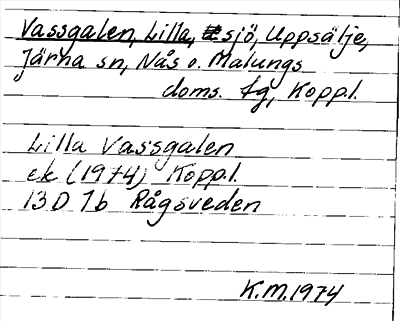 Vassgalen, Lilla, sjö, Uppsälje,
Järna sn, Nås o. Malungs
doms. fg, Kopp.l.
Lilla Vassgalen
ek (1974) Kopp.l.
13 D 7b Rågsveden
K.M. 1974